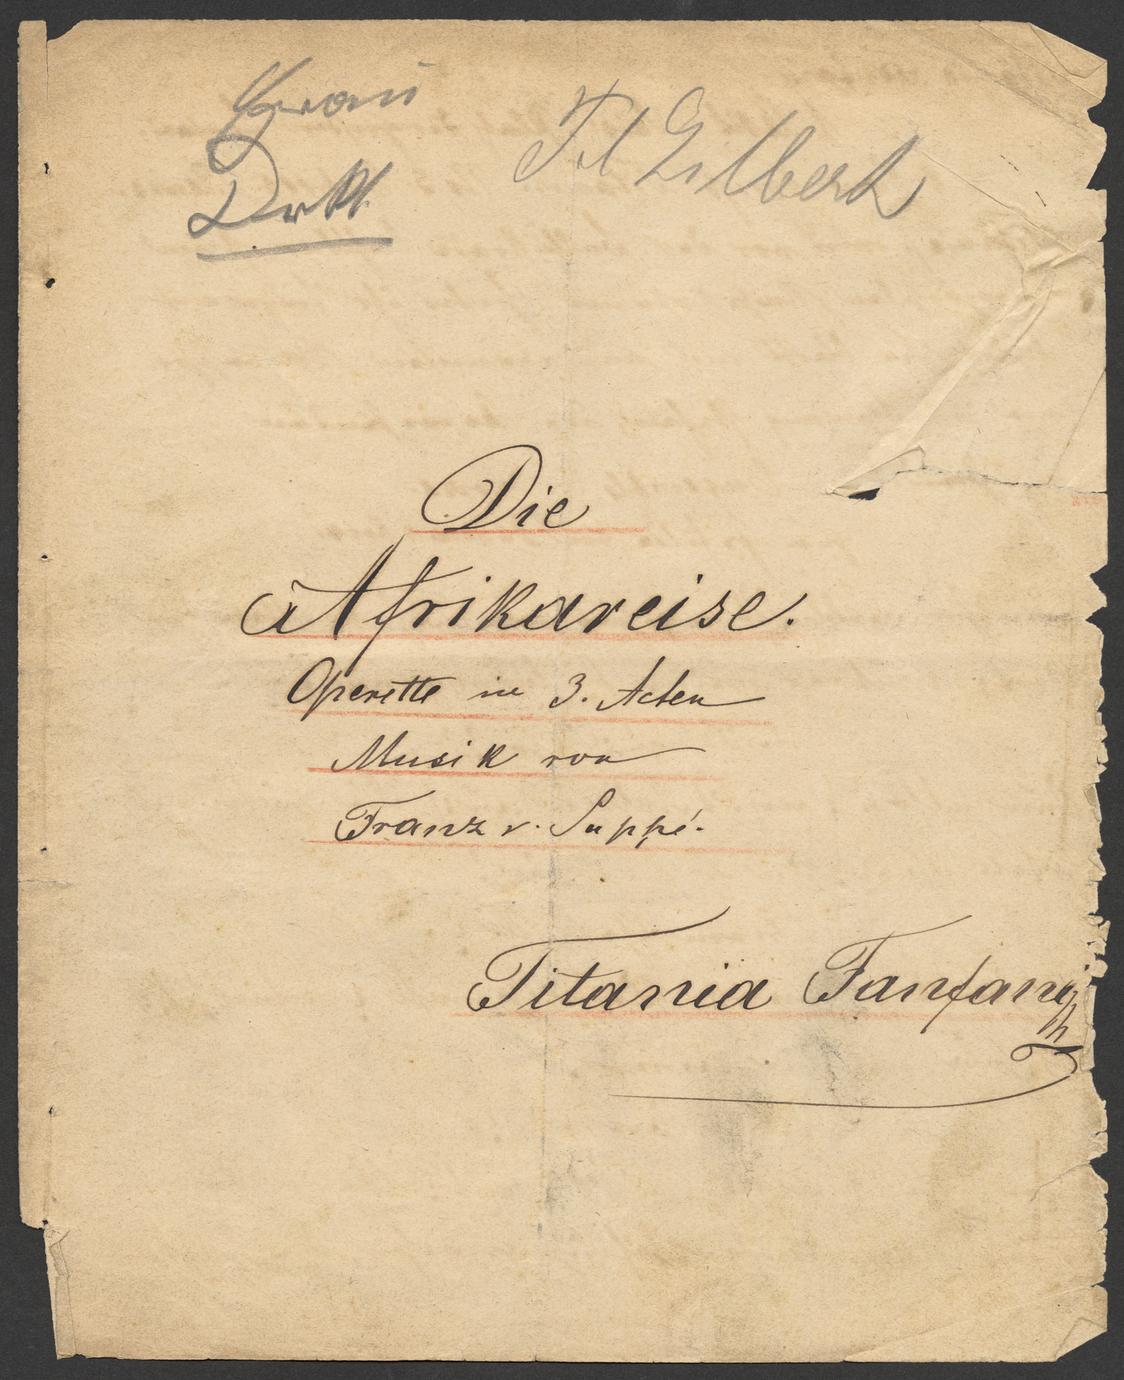 Frau
Fil Gilbert
Die
Afrikareise.
Operette in 3. Acten
Musik von
Franz v. Suppé.
Titania Fanfani